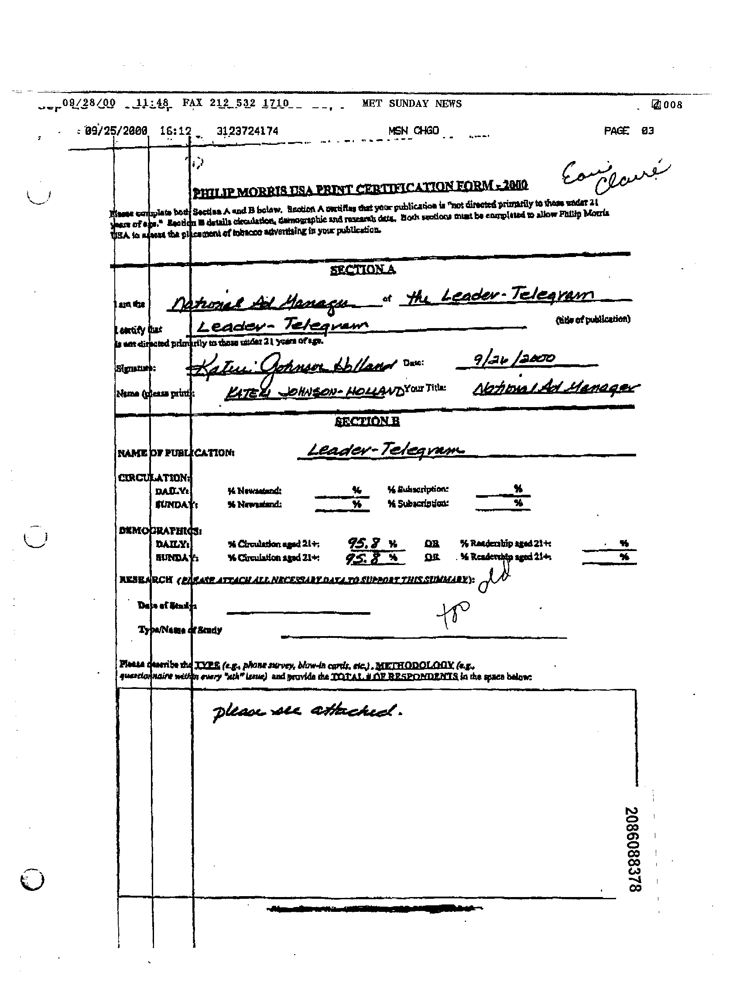 09/28/00 11:48 FAX 212 532 1710 MET SUNDAY NEWS 008
09/25/2000 16:12 3123724174 MSN CHGO PAGE 03
Eau Claire
PHILIP MORRIS USA PRINT CERTIFICATION FORM - 2000
Please complete both Section A and B below. Section A certifies that your publication is "not directed primarily to those under 21
years of age." Section B details circulation, demographic and research data. Both sections must be completed to allow Philip Morris
USA to assess the placement of tobacco advertising in your publication.
SECTION A
I am the National Ad Manager of the Leader-Telegram
(title of publication)
I certify that Leader-Telegram
is not directed primarily to those under 21 years of age.
Signature: Kateri Johnson Holland Date: 9/26/2000
Name (please print): KATERI JOHNSON-HOLLAND Your Title: National Ad Manager
SECTION B
NAME OF PUBLICATION: Leader-Telegram
CIRCULATION:
DAILY: % Newsstand: % % Subscription: %
SUNDAY: % Newsstand: % % Subscription: %
DEMOGRAPHICS:
DAILY: % Circulation aged 21+: 95.8 % OR % Readership aged 21+: %
SUNDAY: % Circulation aged 21+: 95.8 % OR % Readership aged 21+: %
RESEARCH (PLEASE ATTACH ALL NECESSARY DATA TO SUPPORT THIS SUMMARY):
too old
Date of Study:
Type/Name of Study
Please describe the TYPE (e.g., phone survey, blow-in cards, etc.), METHODOLOGY (e.g.,
questionnaire within every "nth" issue) and provide the TOTAL # OF RESPONDENTS in the space below:
please see attached.
2086088378